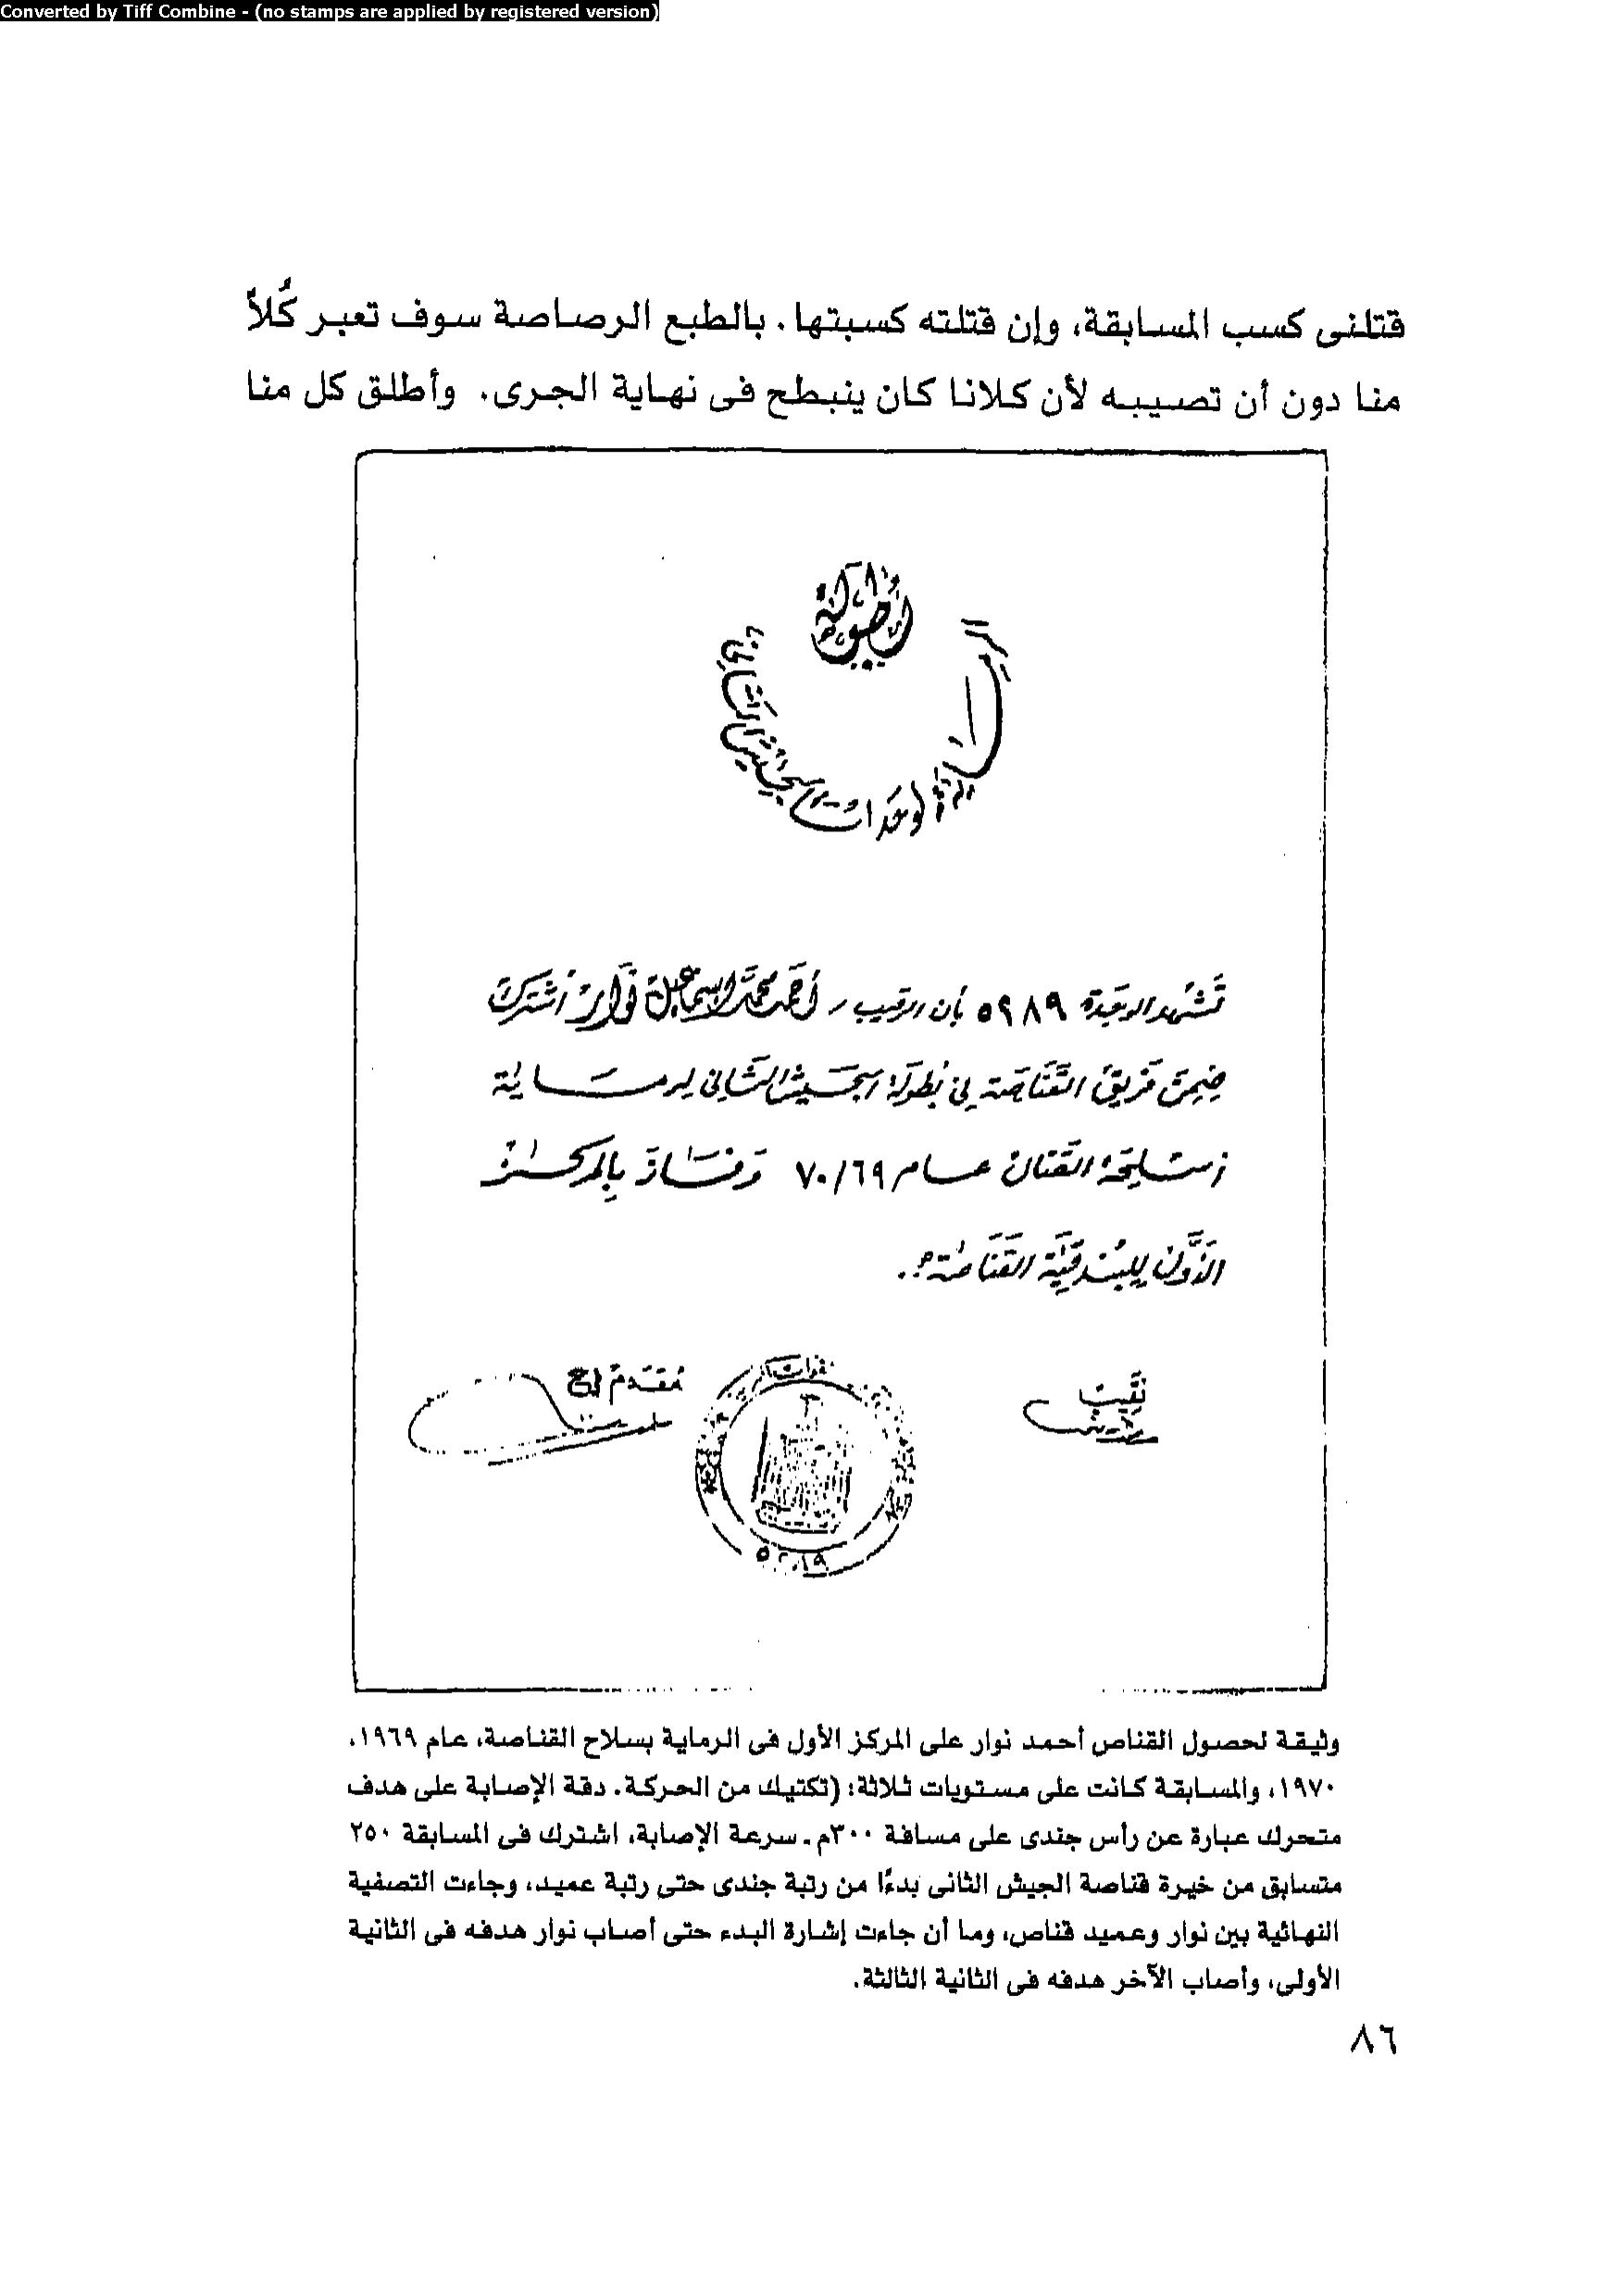 Converted by Tiff Combine - (no stamps are applied by registered version)
قتلنى كسب المسابقة، وإن قتلته كسبتها. بالطبع الرصاصة سوف تعبر كُلاً
منا دون أن تصيبه لأن كلانا كان ينبطح فى نهاية الجرى. وأطلق كل منا
بطولة
الرماية لوحدات الجيش الثانى
تشهد الوحدة ٥٢٨٩ بأن الرقيب / أحمد محمد إسماعيل نوار اشترك
ضمن فريق القناصة فى بطولة الجيش الثانى لرماية
أسلحة القتال عام ٧٠/٦٩ وفاز بالمركز
الأول للبندقية القناصة.
نقيب
مقدم أ ح
٥٢٨٩
وثيقة لحصول القناص أحمد نوار على المركز الأول فى الرماية بسلاح القناصة، عام ١٩٦٩،
١٩٧٠، والمسابقة كانت على مستويات ثلاثة: (تكتيك من الحركة. دقة الإصابة على هدف
متحرك عبارة عن رأس جندى على مسافة ٣٠٠م. سرعة الإصابة، اشترك فى المسابقة ٢٥٠
متسابق من خيرة قناصة الجيش الثانى بدءًا من رتبة جندى حتى رتبة عميد، وجاءت التصفية
النهائية بين نوار وعميد قناص، وما أن جاءت إشارة البدء حتى أصاب نوار هدفه فى الثانية
الأولى، وأصاب الآخر هدفه فى الثانية الثالثة.
٨٦